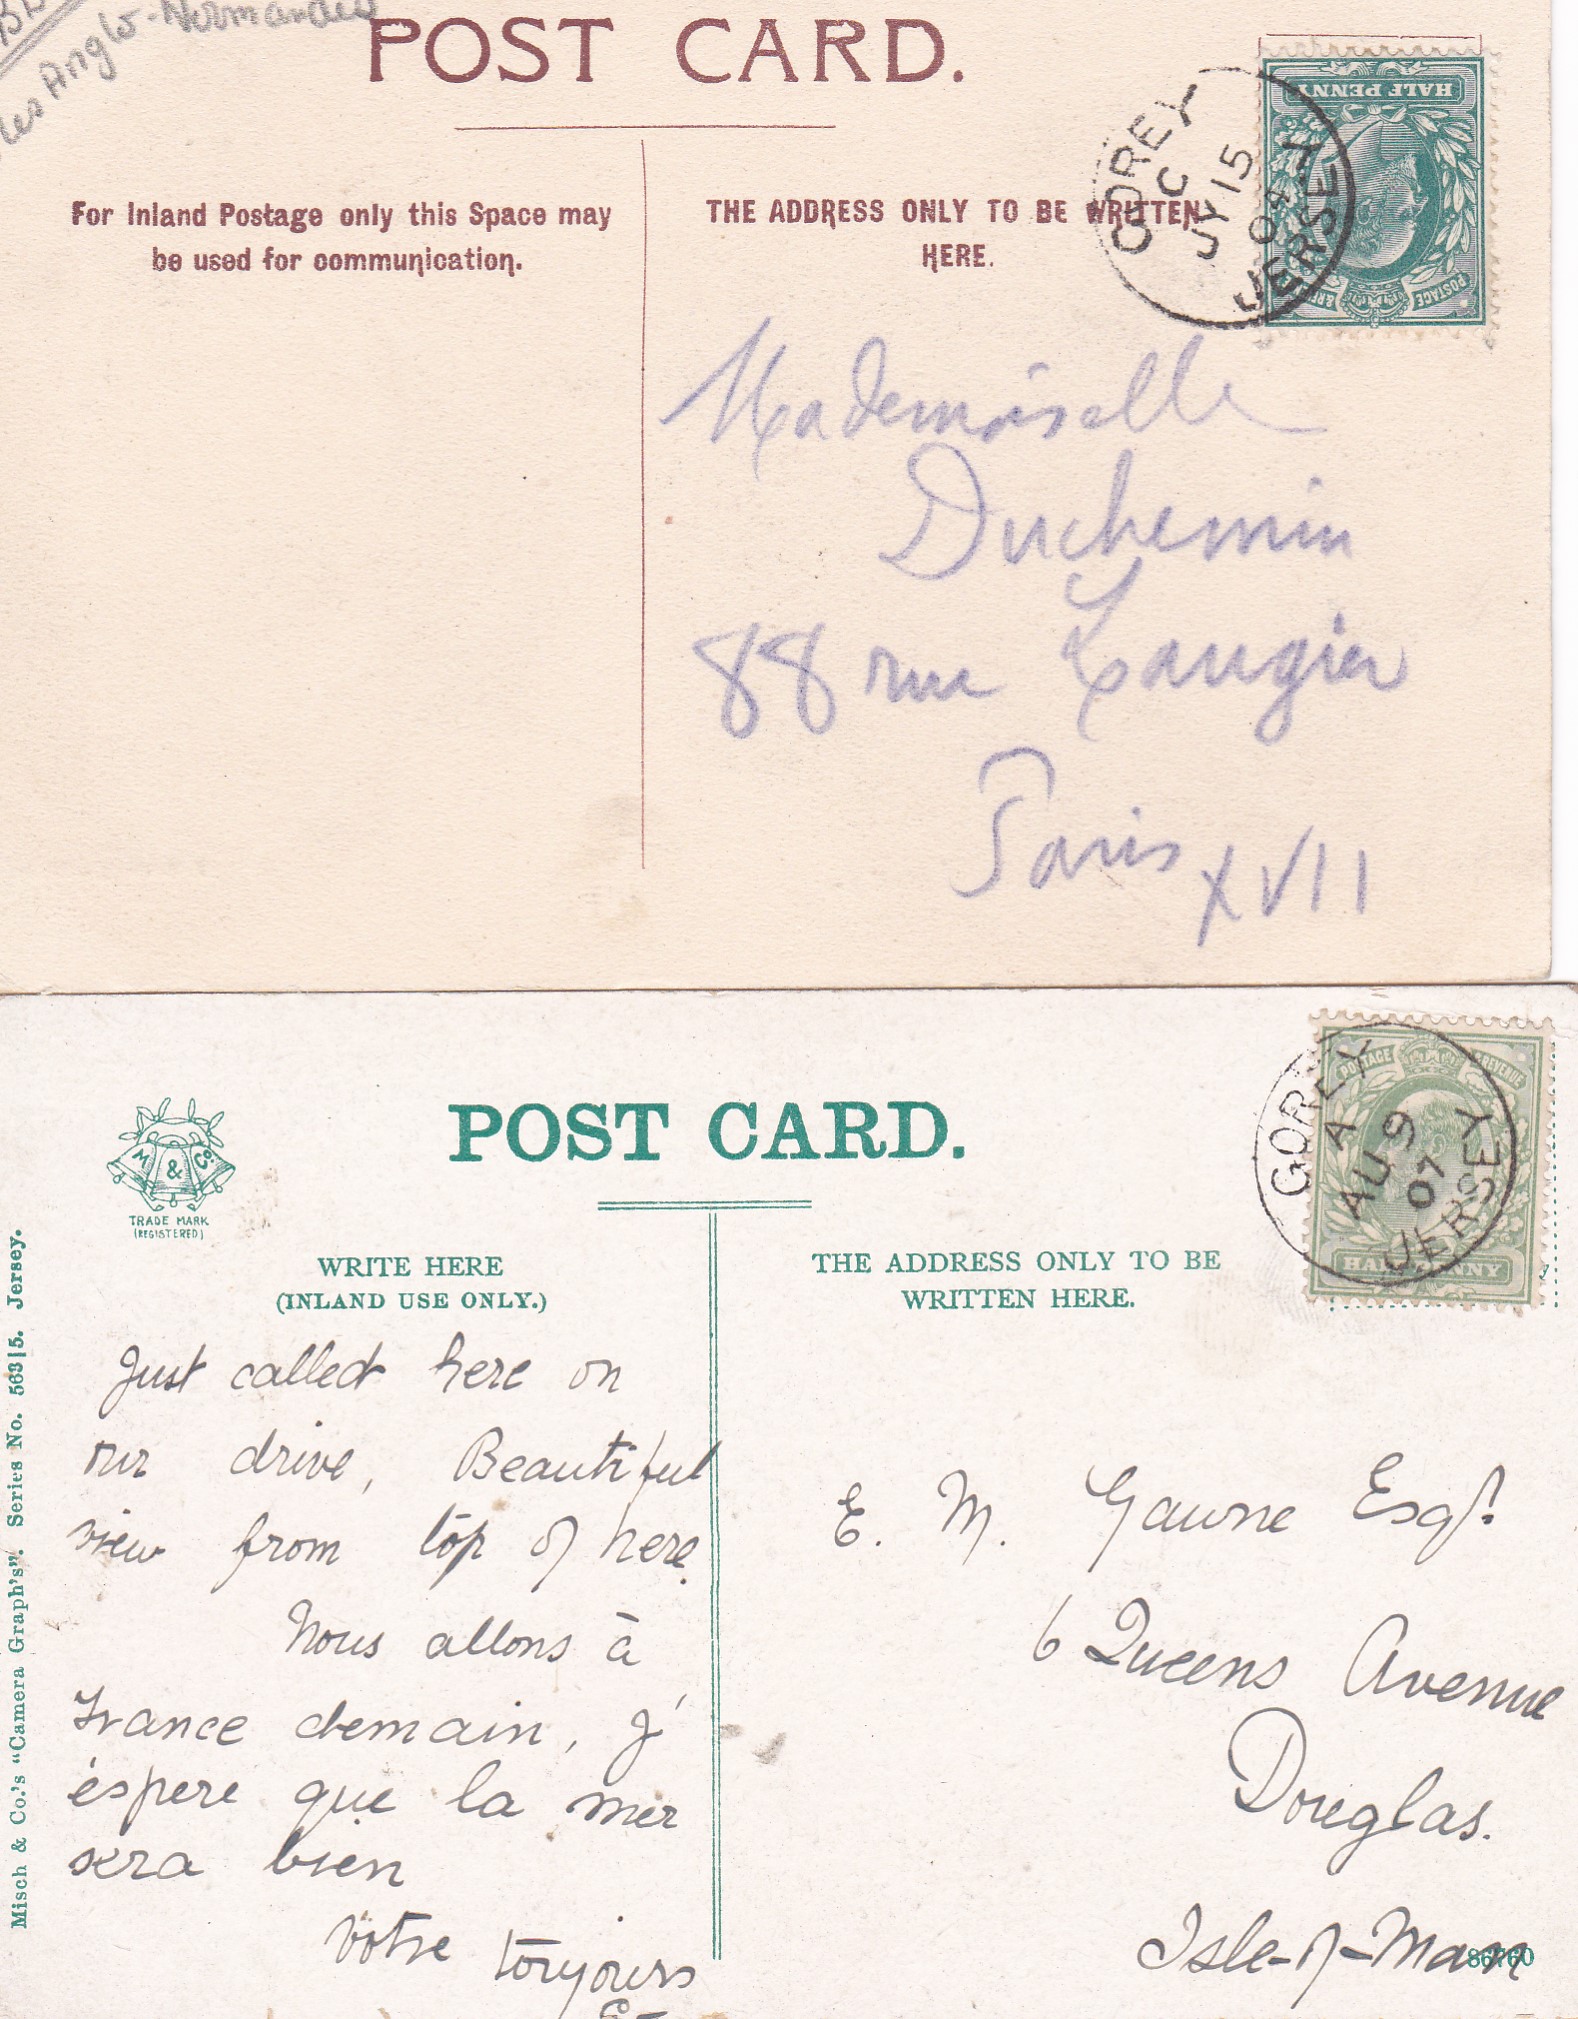 Iles Anglo-Normandes
POST CARD.
For Inland Postage only this Space may
be used for communication.
THE ADDRESS ONLY TO BE WRITTEN
HERE.
GOREY
C
JY 15
04
JERSEY
HALF PENNY
POSTAGE
Mademoiselle
Duchemin
88 rue Laugier
Paris XVII
M & Co.
TRADE MARK
(REGISTERED)
POST CARD.
POSTAGE REVENUE
HALF PENNY
GOREY
A
AU 9
07
JERSEY
WRITE HERE
(INLAND USE ONLY.)
THE ADDRESS ONLY TO BE
WRITTEN HERE.
Misch & Co.'s "Camera Graph's". Series No. 563/5. Jersey.
Just called here on
our drive, Beautiful
view from top of here.
Nous allons à
France demain, j'
éspere que la mer
sera bien
Votre toujours
E. M. Gawne Esqr.
6 Queens Avenue
Douglas.
Isle-of-Man
86760